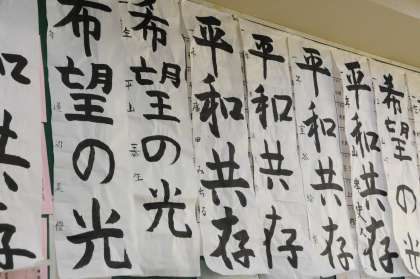 和共存
希望の光
希望の光
平和共存
平和共存
平和共存
平和共存
希望の光